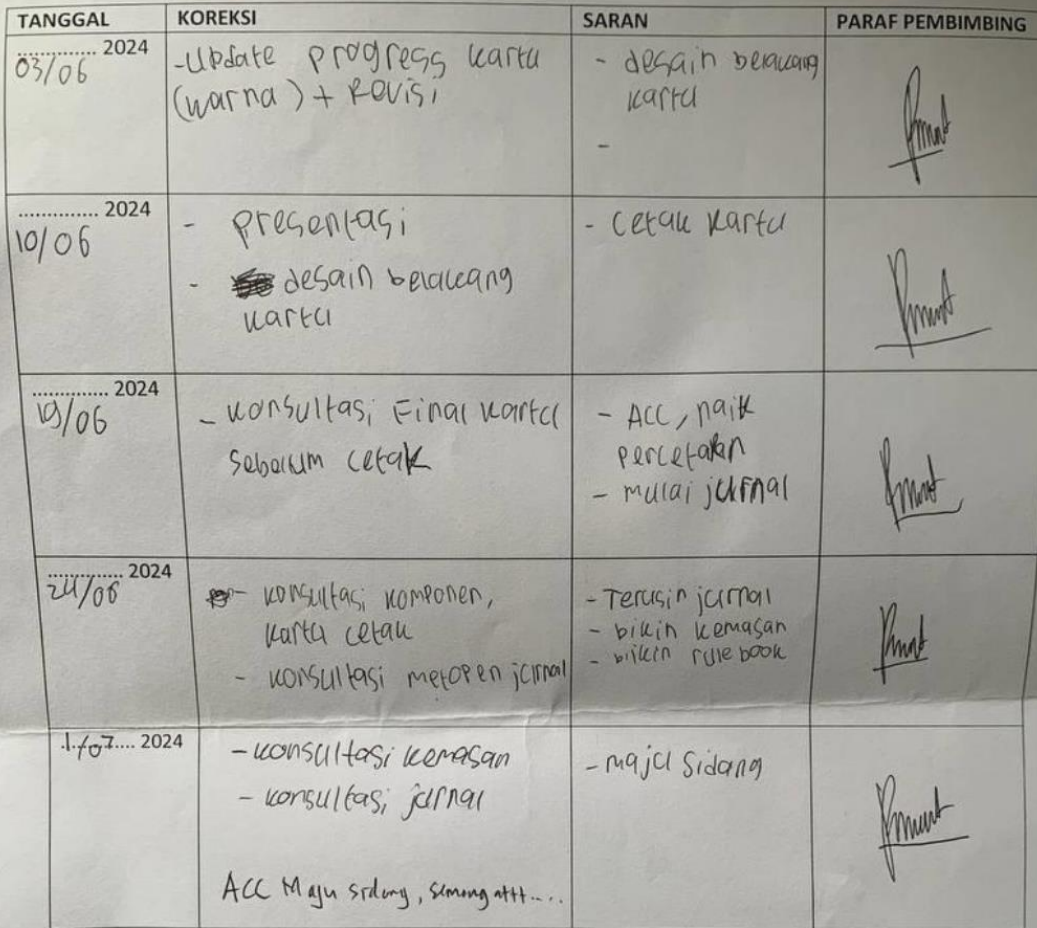 TANGGAL KOREKSI SARAN PARAF PEMBIMBING
.............. 2024
03/06
-Update progress kartu
(warna) + Revisi
- desain belakang
kartu
-
.............. 2024
10/06
- presentasi
- desain belakang
kartu
- Cetak kartu
.............. 2024
19/06
- konsultasi Final kartu
sebelum cetak
- ACC, naik
percetakan
- mulai jurnal
.............. 2024
24/06
- konsultasi komponen,
kartu cetak
- konsultasi metopen jurnal
- Terusin jurnal
- bikin kemasan
- bikin rule book
.1./07.... 2024
- konsultasi kemasan
- konsultasi jurnal
ACC Maju sidang, semangattt....
- maju sidang